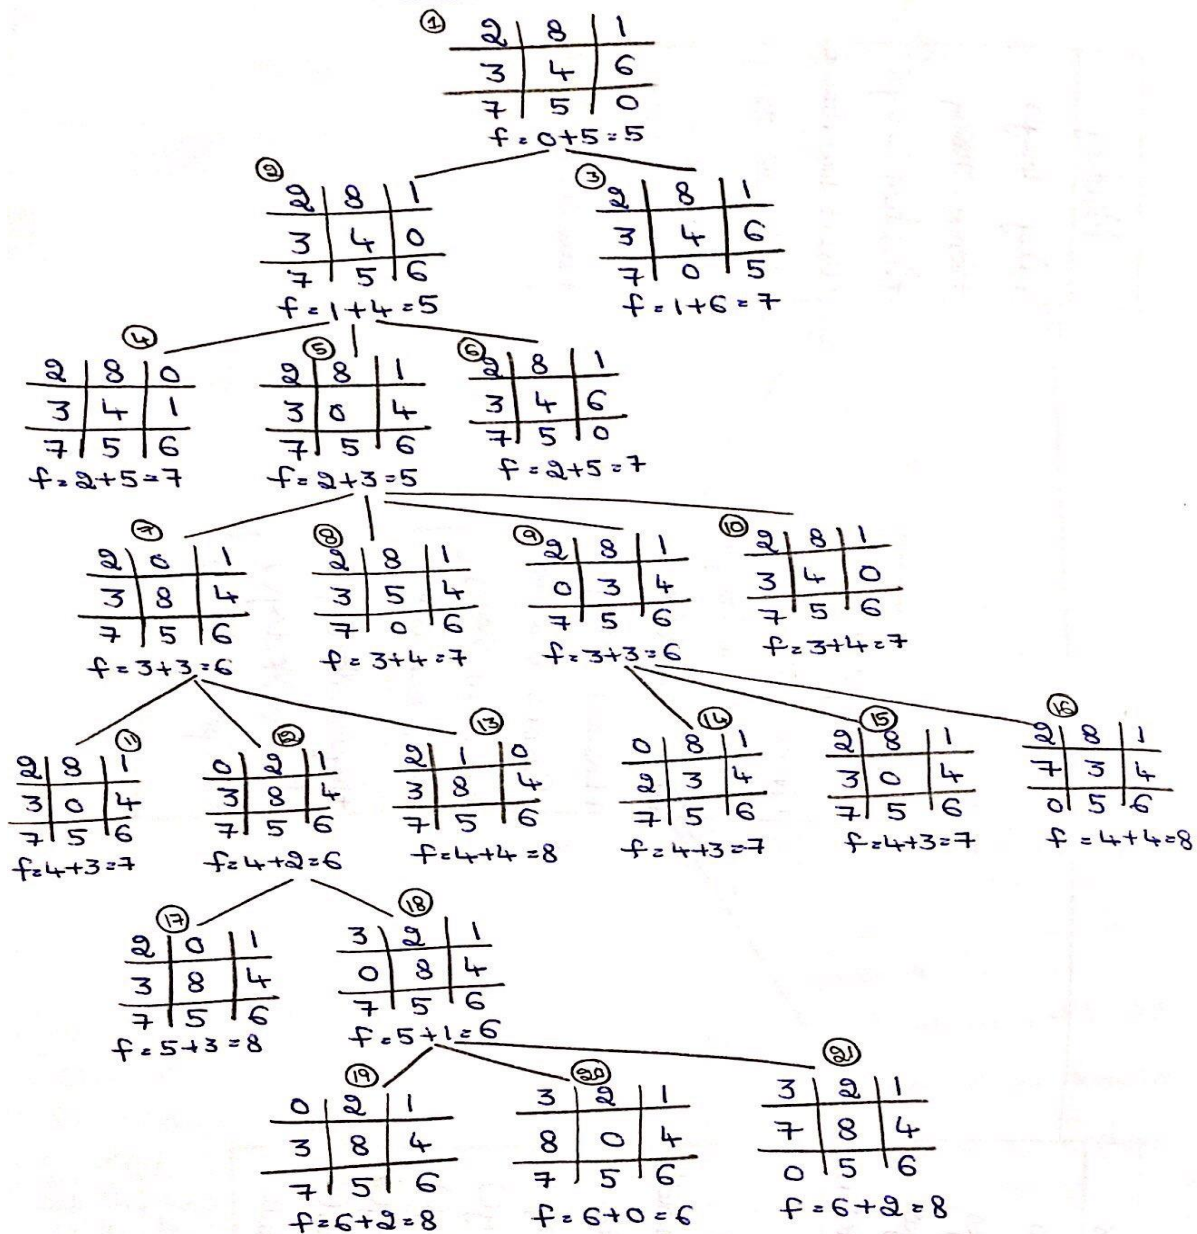 ① 2 8 1
3 4 6
7 5 0
f = 0+5 = 5
② 2 8 1
3 4 0
7 5 6
f = 1+4 = 5
③ 2 8 1
3 4 6
7 0 5
f = 1+6 = 7
④ 2 8 0
3 4 1
7 5 6
f = 2+5 = 7
⑤ 2 8 1
3 0 4
7 5 6
f = 2+3 = 5
⑥ 2 8 1
3 4 6
7 5 0
f = 2+5 = 7
⑦ 2 0 1
3 8 4
7 5 6
f = 3+3 = 6
⑧ 2 8 1
3 5 4
7 0 6
f = 3+4 = 7
⑨ 2 8 1
0 3 4
7 5 6
f = 3+3 = 6
⑩ 2 8 1
3 4 0
7 5 6
f = 3+4 = 7
⑪ 2 8 1
3 0 4
7 5 6
f = 4+3 = 7
⑫ 0 2 1
3 8 4
7 5 6
f = 4+2 = 6
⑬ 2 1 0
3 8 4
7 5 6
f = 4+4 = 8
⑭ 0 8 1
2 3 4
7 5 6
f = 4+3 = 7
⑮ 2 8 1
3 0 4
7 5 6
f = 4+3 = 7
⑯ 2 8 1
7 3 4
0 5 6
f = 4+4 = 8
⑰ 2 0 1
3 8 4
7 5 6
f = 5+3 = 8
⑱ 3 2 1
0 8 4
7 5 6
f = 5+1 = 6
⑲ 0 2 1
3 8 4
7 5 6
f = 6+2 = 8
⑳ 3 2 1
8 0 4
7 5 6
f = 6+0 = 6
㉑ 3 2 1
7 8 4
0 5 6
f = 6+2 = 8